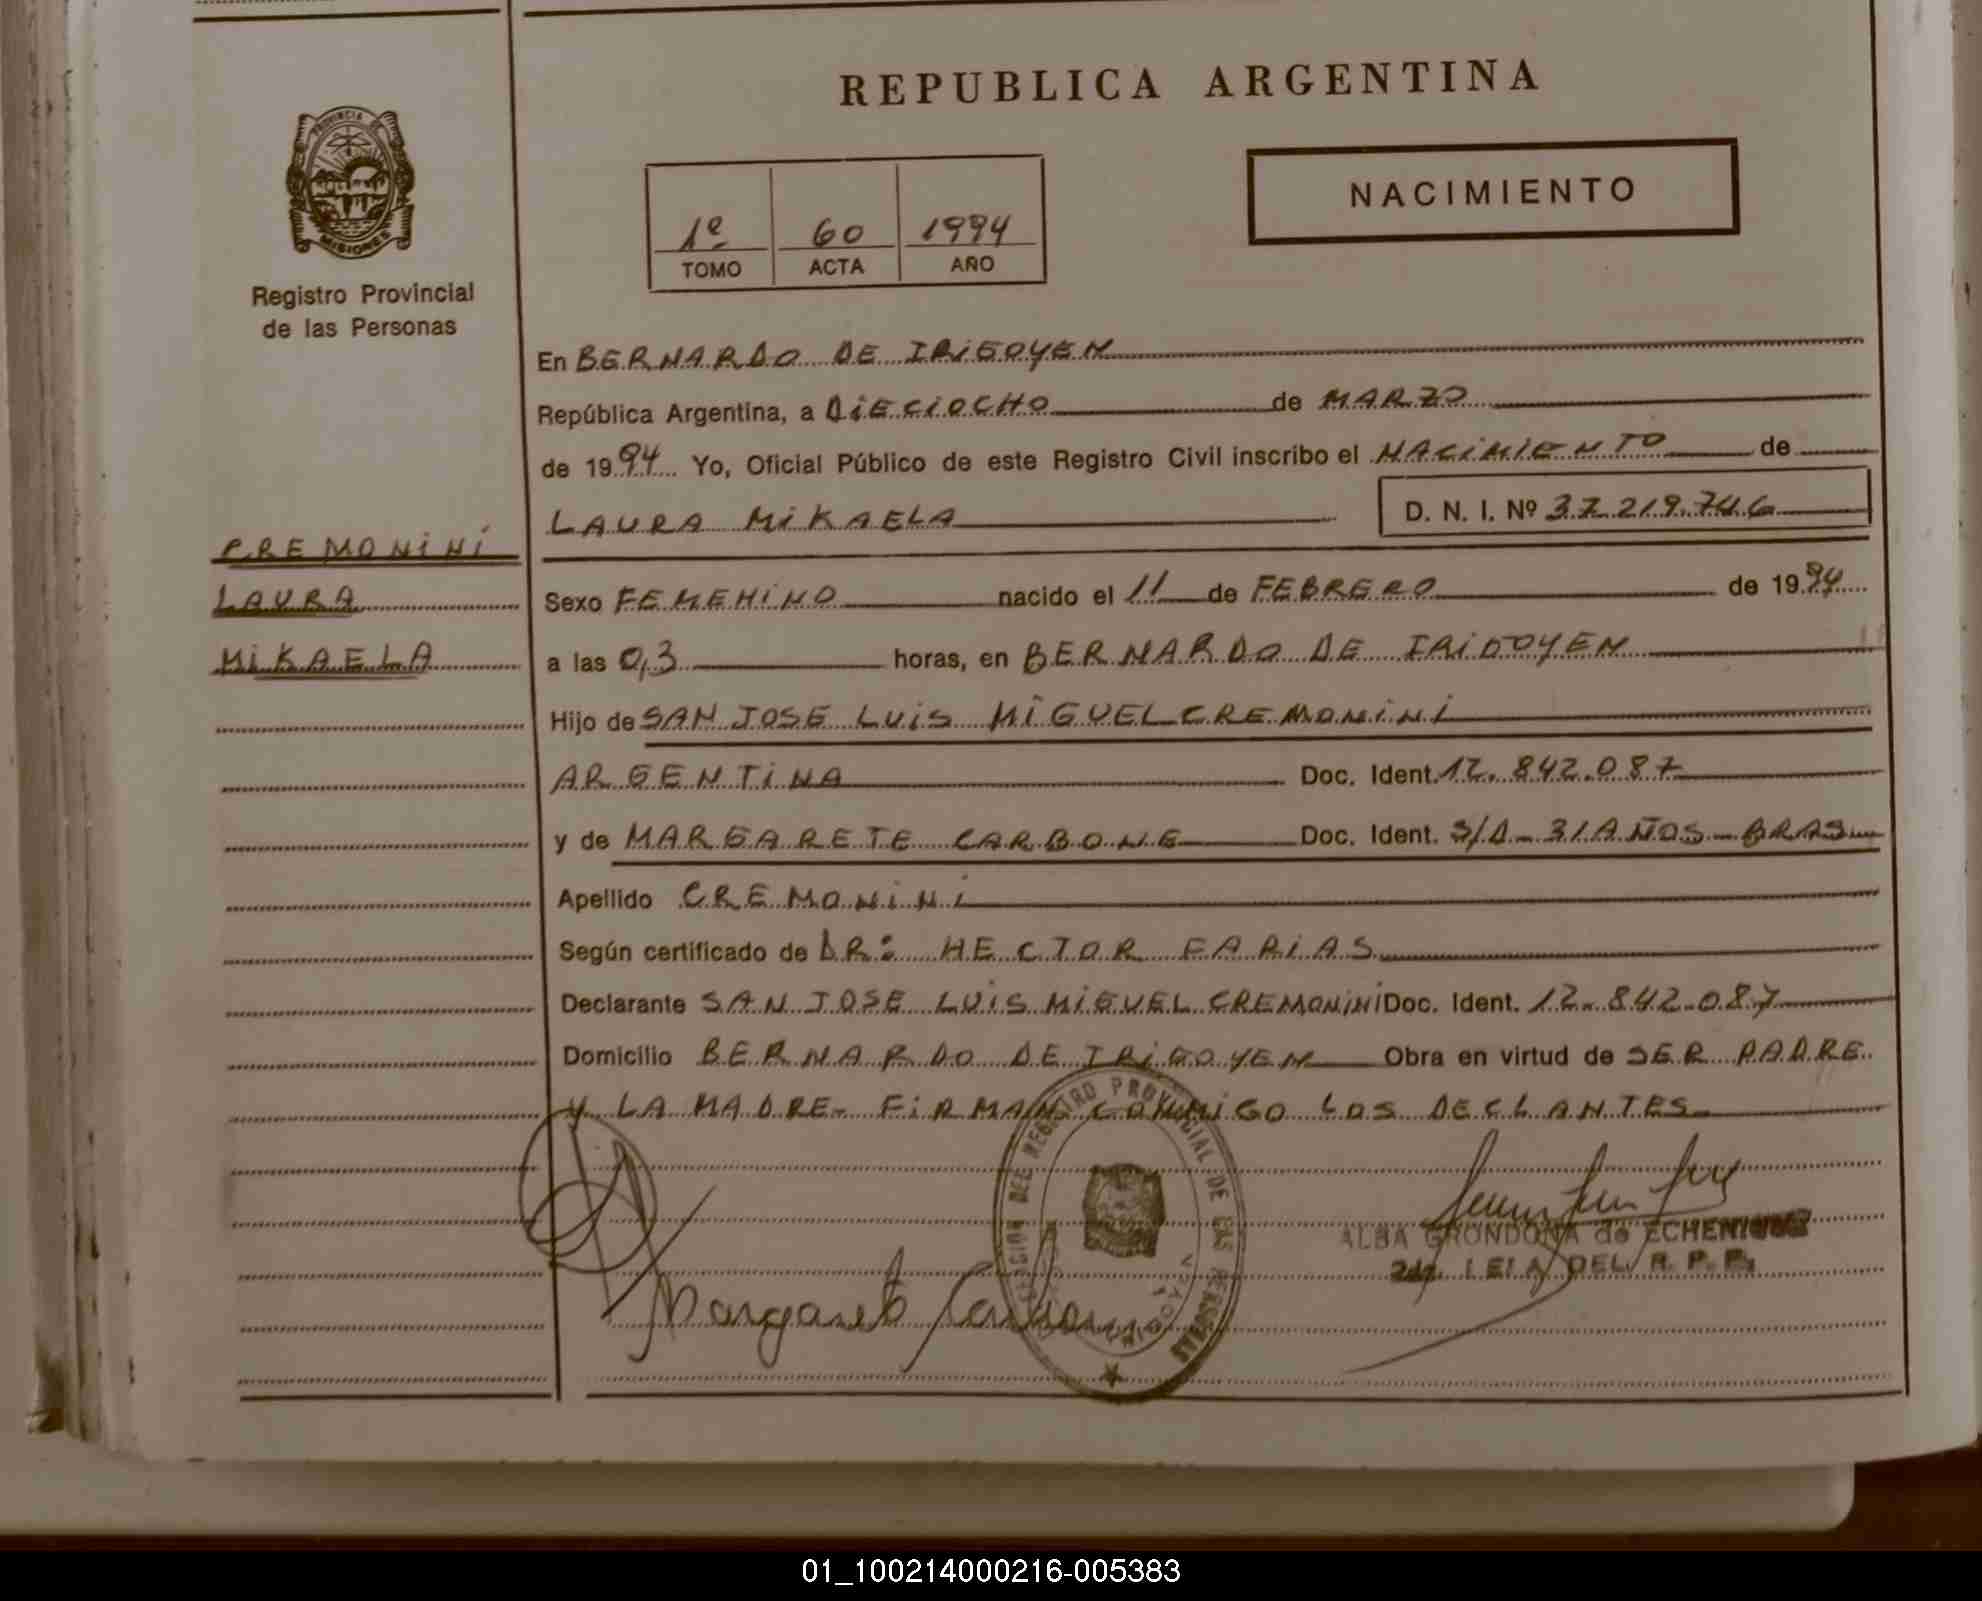 REPUBLICA ARGENTINA
PROVINCIA DE
MISIONES
Registro Provincial
de las Personas
1º 60 1994
TOMO ACTA AÑO
NACIMIENTO
En BERNARDO DE IRIGOYEN
República Argentina, a DIECIOCHO de MARZO
de 1994 Yo, Oficial Público de este Registro Civil inscribo el NACIMIENTO de
LAURA MIKAELA D. N. I. Nº 37.219.746
CREMONINI
LAURA
MIKAELA
Sexo FEMENINO nacido el 11 de FEBRERO de 1994
a las 0,3 horas, en BERNARDO DE IRIGOYEN
Hijo de SAN JOSE LUIS MIGUEL CREMONINI
ARGENTINA Doc. Ident. 12.842.087
y de MARGARETE CARBONE Doc. Ident. S/D - 31 AÑOS - BRAS
Apellido CREMONINI
Según certificado de DR: HECTOR FARIAS
Declarante SAN JOSE LUIS MIGUEL CREMONINI Doc. Ident. 12.842.087
Domicilio BERNARDO DE IRIGOYEN Obra en virtud de SER PADRE
Y LA MADRE - FIRMAN CONMIGO LOS DECLANTES
DEL REGISTRO PROVINCIAL DE LAS PERSONAS
ALBA GRONDONA de ECHENIQUE
DEL R. P. P.
Margarete Carbone
01_100214000216-005383